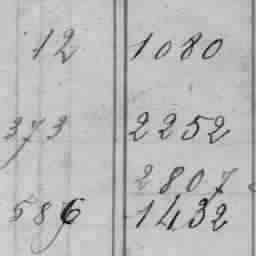 12 1080
373 2252
2807
586 1432